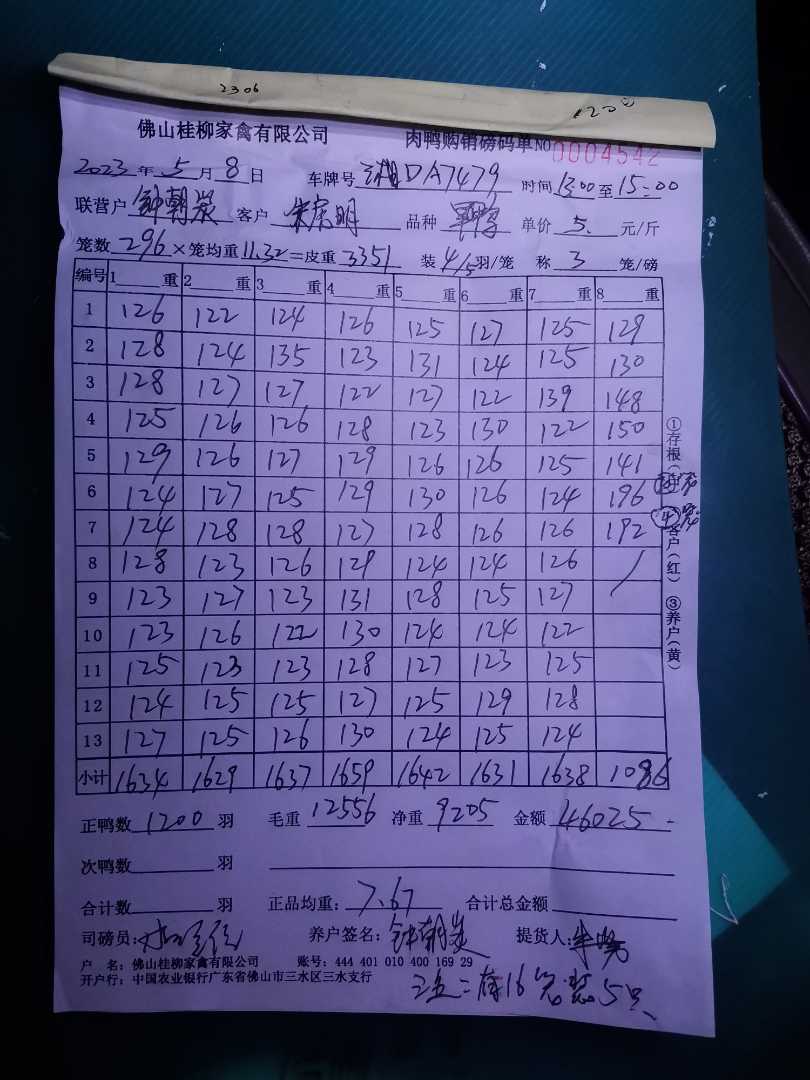 2306
1200
佛山桂柳家禽有限公司 肉鸭购销磅码单 NO 0004542
2023 年 5 月 8 日 车牌号 DA7479 时间 13:00 至 15:00
联营户 钟朝炭 客户 明 品种 单价 5. 元/斤
笼数 296 × 笼均重 11.32 = 皮重 3351 装 4/5 羽/笼 称 3 笼/磅
编号 1 重 2 重 3 重 4 重 5 重 6 重 7 重 8 重
1 126 122 124 126 125 127 125 129
2 128 124 135 123 131 124 125 130
3 128 127 127 122 127 122 139 148
4 125 126 126 128 123 130 122 150
5 129 126 127 129 126 126 125 141
6 124 127 125 129 130 126 124 196
7 124 128 128 127 128 126 126 192
8 128 123 126 129 124 124 126 /
9 123 127 123 131 128 125 127
10 123 126 122 130 124 124 122
11 125 123 123 128 127 123 125
12 124 125 125 127 125 129 128
13 127 125 126 130 124 125 124
小计 1634 1629 1637 1659 1642 1631 1638 1086
①存根( 客户(红) ③养户(黄)
④笼
正鸭数 1200 羽 毛重 12556 净重 9205 金额 46025 -
次鸭数 羽
合计数 羽 正品均重: 7.67 合计总金额
司磅员: 养户签名: 钟朝炭 提货人:
户 名: 佛山桂柳家禽有限公司 账号: 444 401 010 400 169 29
开户行: 中国农业银行广东省佛山市三水区三水支行
注: 有16笼装5只